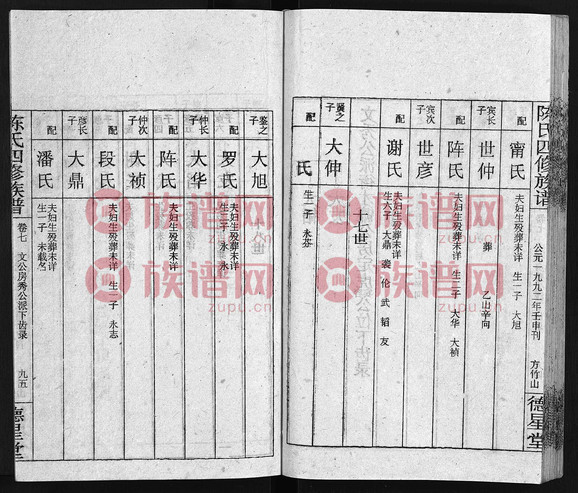 陈氏四修族谱
卷七
公元一九九二年壬申刊
方竹山
德星堂
配
甯氏
夫妇生殁葬未详 生一子 大旭
宾长子
世仲
葬 乙山辛向
配
阵氏
夫妇生殁葬未详 生二子 大华 大祯
宾次子
世彦
配
谢氏
夫妇生殁葬未详
生六子 大鼎 裘 伦 武 韬 友
十七世
大伸
配
氏
生一子 永芥
大旭
配
罗氏
夫妇生殁葬未详
仲长子
大华
配
阵氏
夫妇生殁葬未详
仲次子
大祯
配
段氏
夫妇生殁葬未详 生一子 永志
彦长子
大鼎
配
潘氏
夫妇生殁葬未详
生一子 未载名
陈氏四修族谱
卷七
文公房秀公派下齿录
九五
德星堂
族谱网
zupu.cn
族谱网
zupu.cn
族谱网
zupu.cn
族谱网
zupu.cn